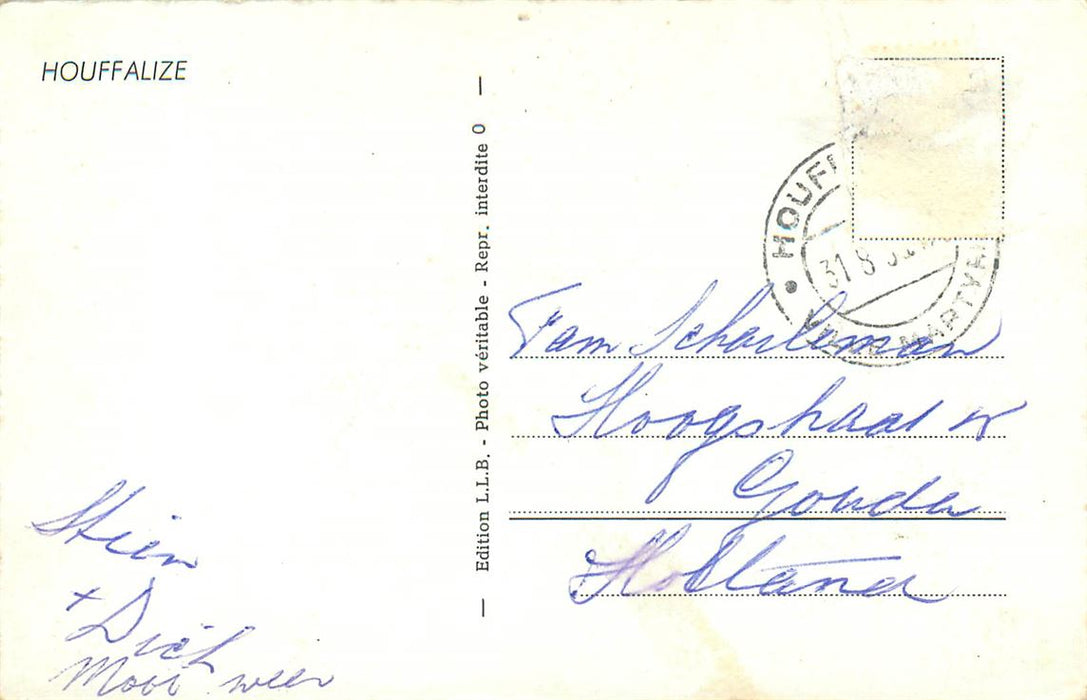 HOUFFALIZE
Edition L.L.B. - Photo véritable - Repr. interdite O
HOUFF
31 8
VILLE MARTYR
Fam Scharleman
Hoogstraat
Gouda
Holland
Stien
+ Dick
Mooi weer